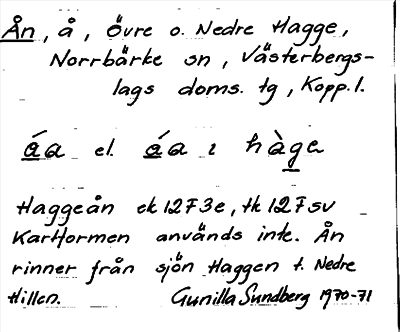 Ån, å, Övre o. Nedre Hagge,
Norrbärke sn, Västerbergs-
lags doms. tg, Kopp. l.
áa el. áa i hàge
Haggeån ek 12F3e, tk 12F sv
Kartformen används inte. Ån
rinner från sjön Haggen t. Nedre
Hillen. Gunilla Sundberg 1970-71